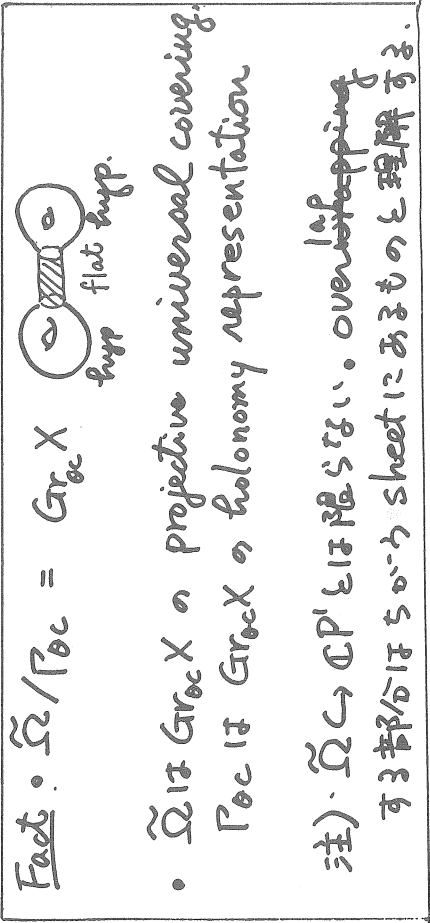 Fact. • Ω̃/Γ_θc = Gr_θc X
hyp flat hyp.
• Ω̃ は Gr_θc X の projective universal covering,
Γ_θc は Gr_θc X の holonomy representation
注)・Ω̃ ↪ ℂP¹ とは限らない。overlap
する部分はちがう sheet にあるものと理解する.